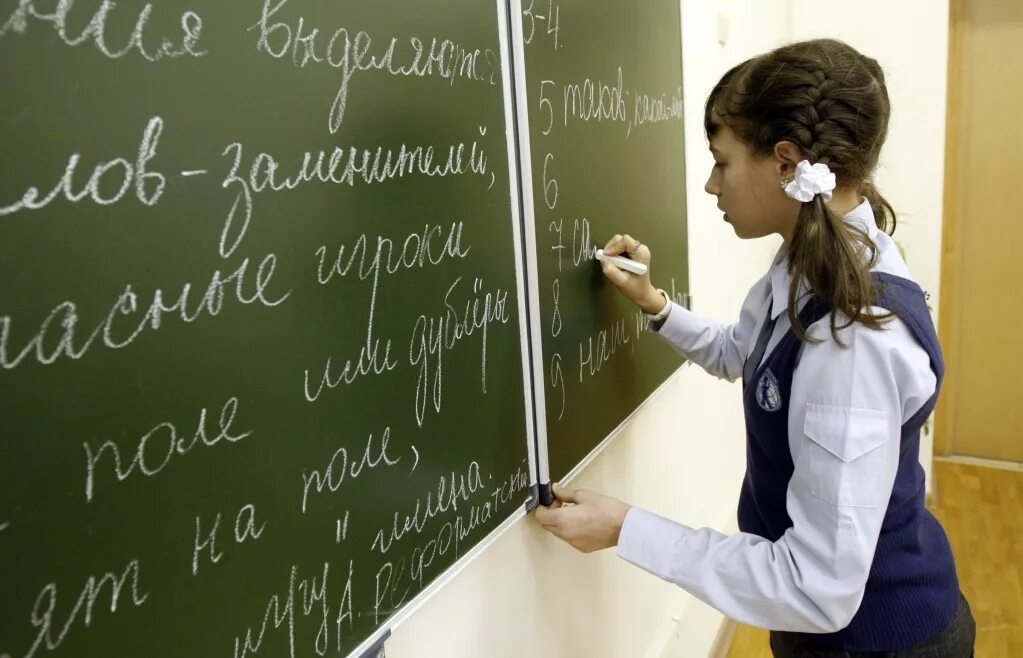 ния выделяются
лов-заменителей,
асные игроки
или дублёры
поле
на поле,
"имена.
ят игру
А. Реформатский
3-4.
5 таков, какой-либо
6
7 са
8
9 наш,